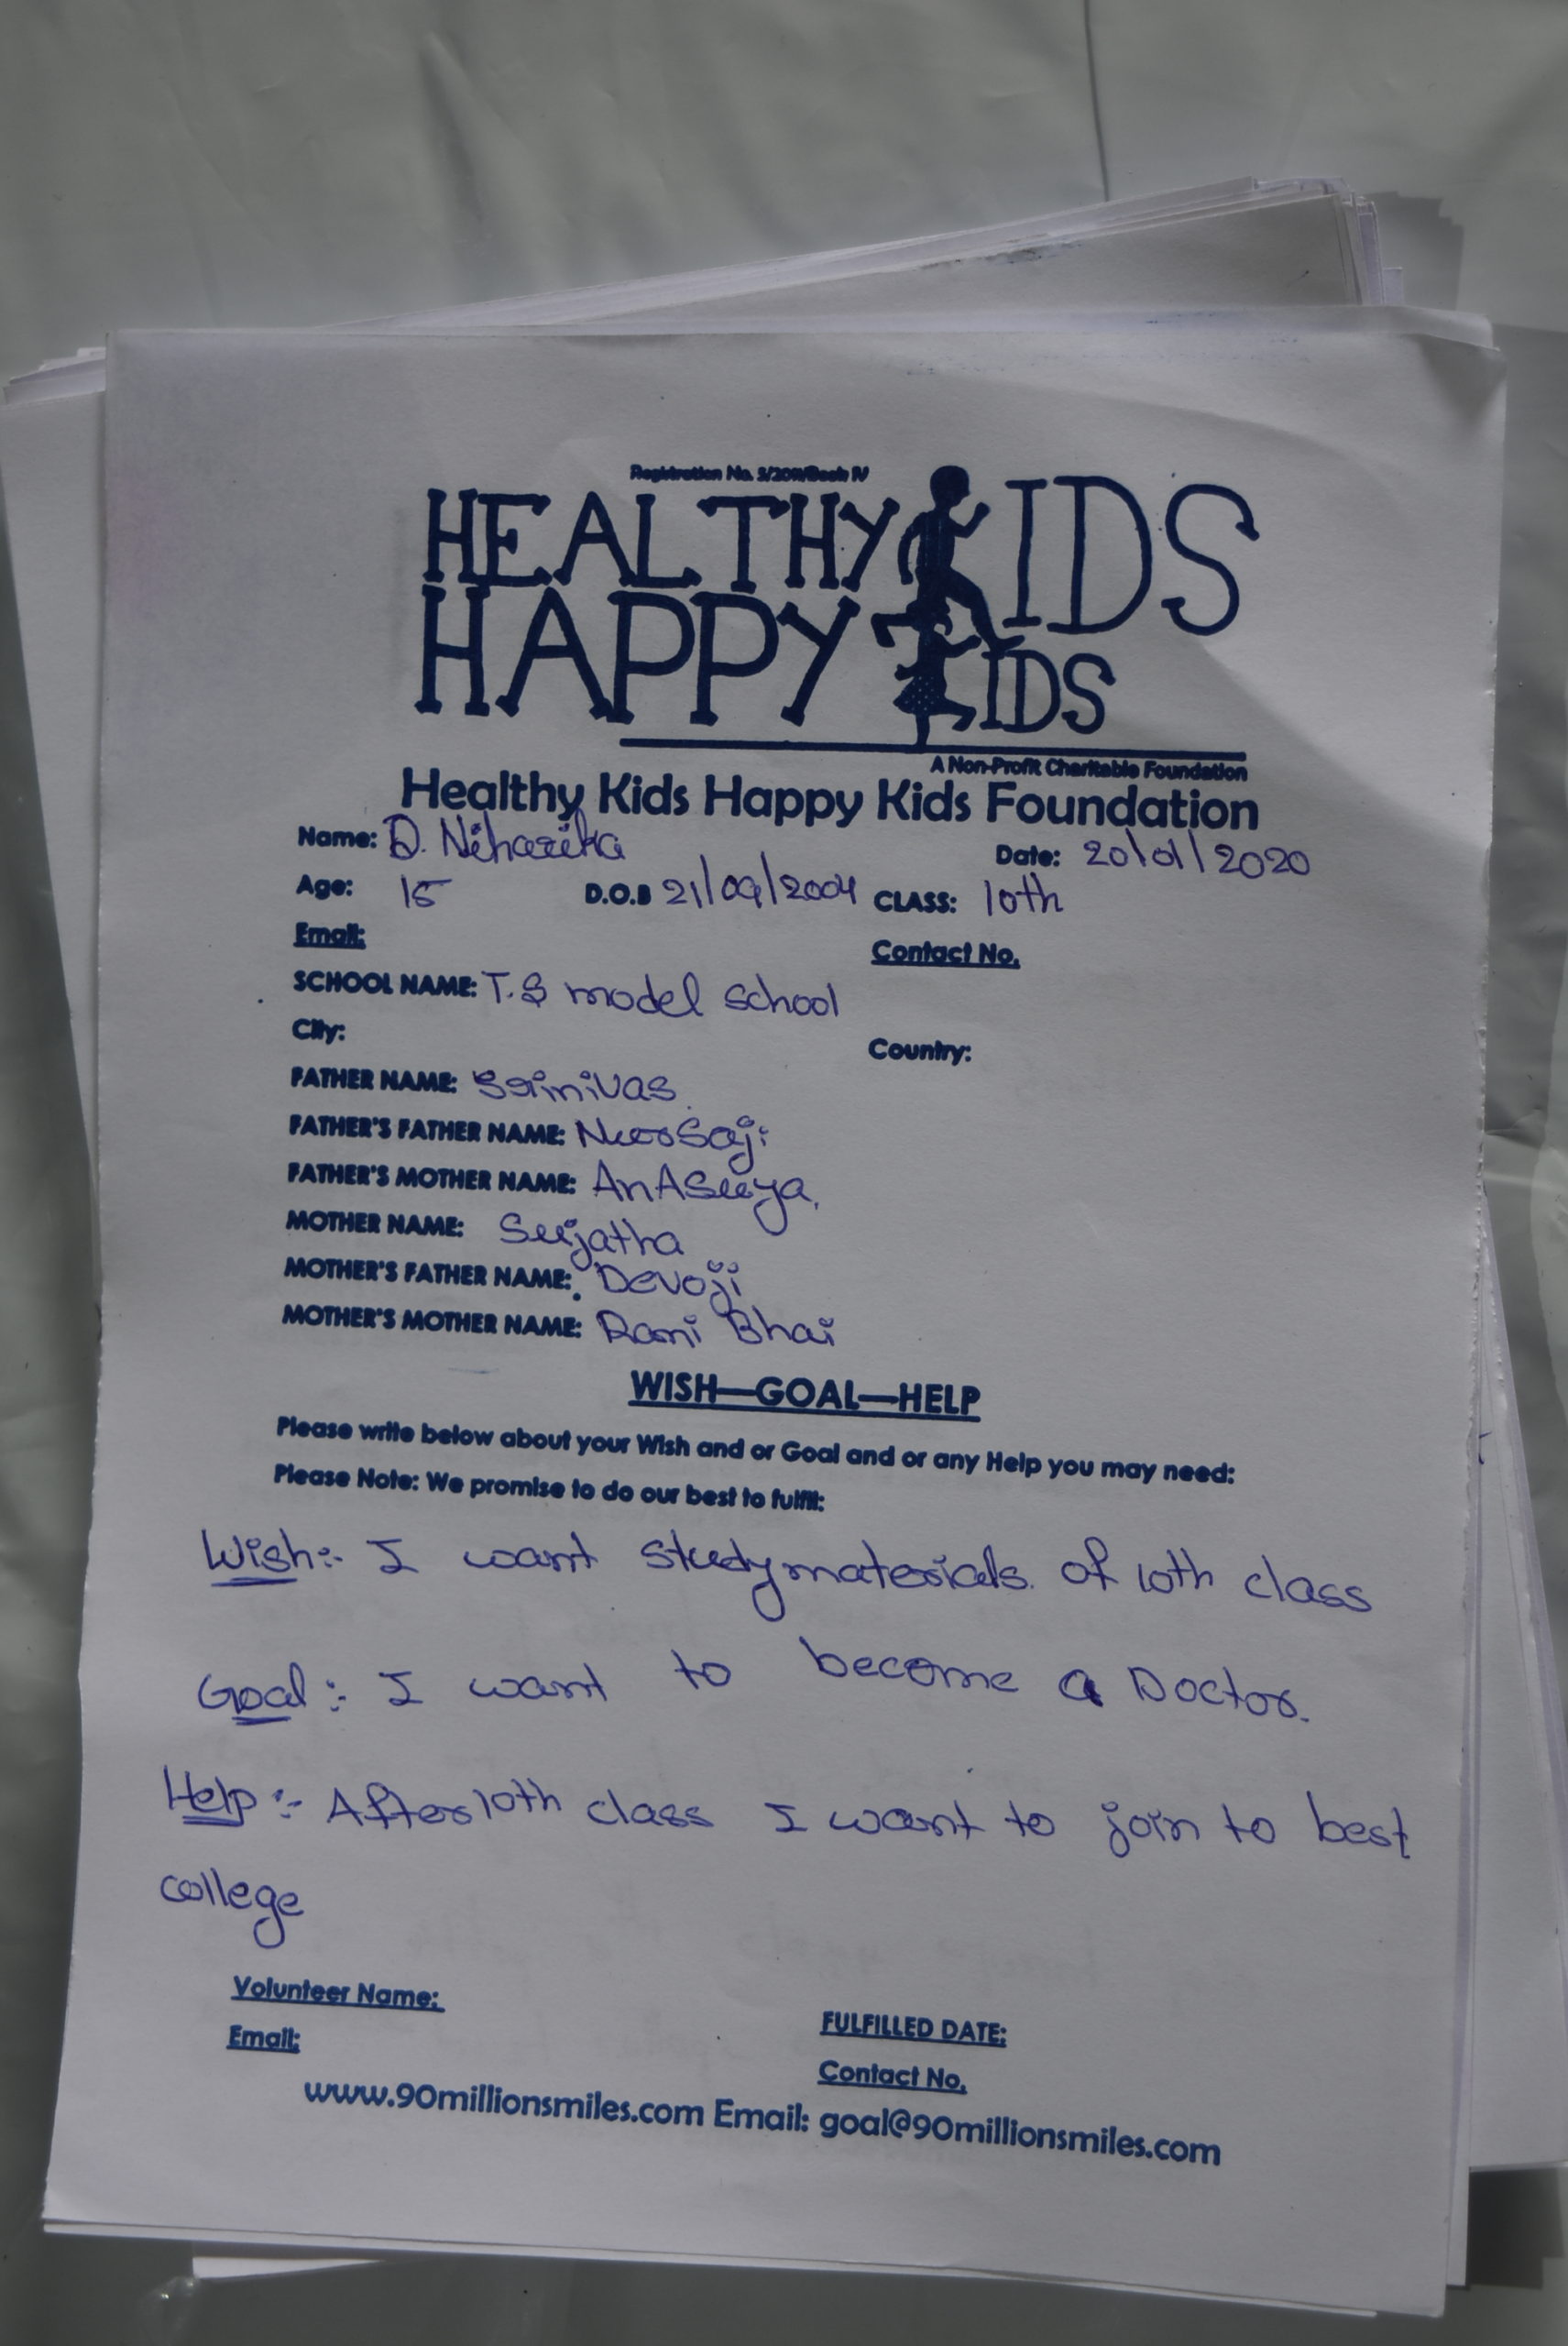 Registration No. 5/2011/Book IV
HEALTHY KIDS
HAPPY KIDS
A Non-Profit Charitable Foundation
Healthy Kids Happy Kids Foundation
Name: D. Niharika Date: 20/01/2020
Age: 15 D.O.B 21/09/2004 CLASS: 10th
Email: Contact No.
SCHOOL NAME: T.S model school
City: Country:
FATHER NAME: Srinivas.
FATHER'S FATHER NAME:
FATHER'S MOTHER NAME: AnASuya.
MOTHER NAME: Sujatha
MOTHER'S FATHER NAME: Devoji
MOTHER'S MOTHER NAME: Rami Bhai
WISH—GOAL—HELP
Please write below about your Wish and or Goal and or any Help you may need:
Please Note: We promise to do our best to fulfill:
Wish:- I want study materials. of 10th class
Goal:- I want to become a Doctor.
Help:- After 10th class I want to join to best
college
Volunteer Name: FULFILLED DATE:
Email: Contact No.
www.90millionsmiles.com Email: goal@90millionsmiles.com